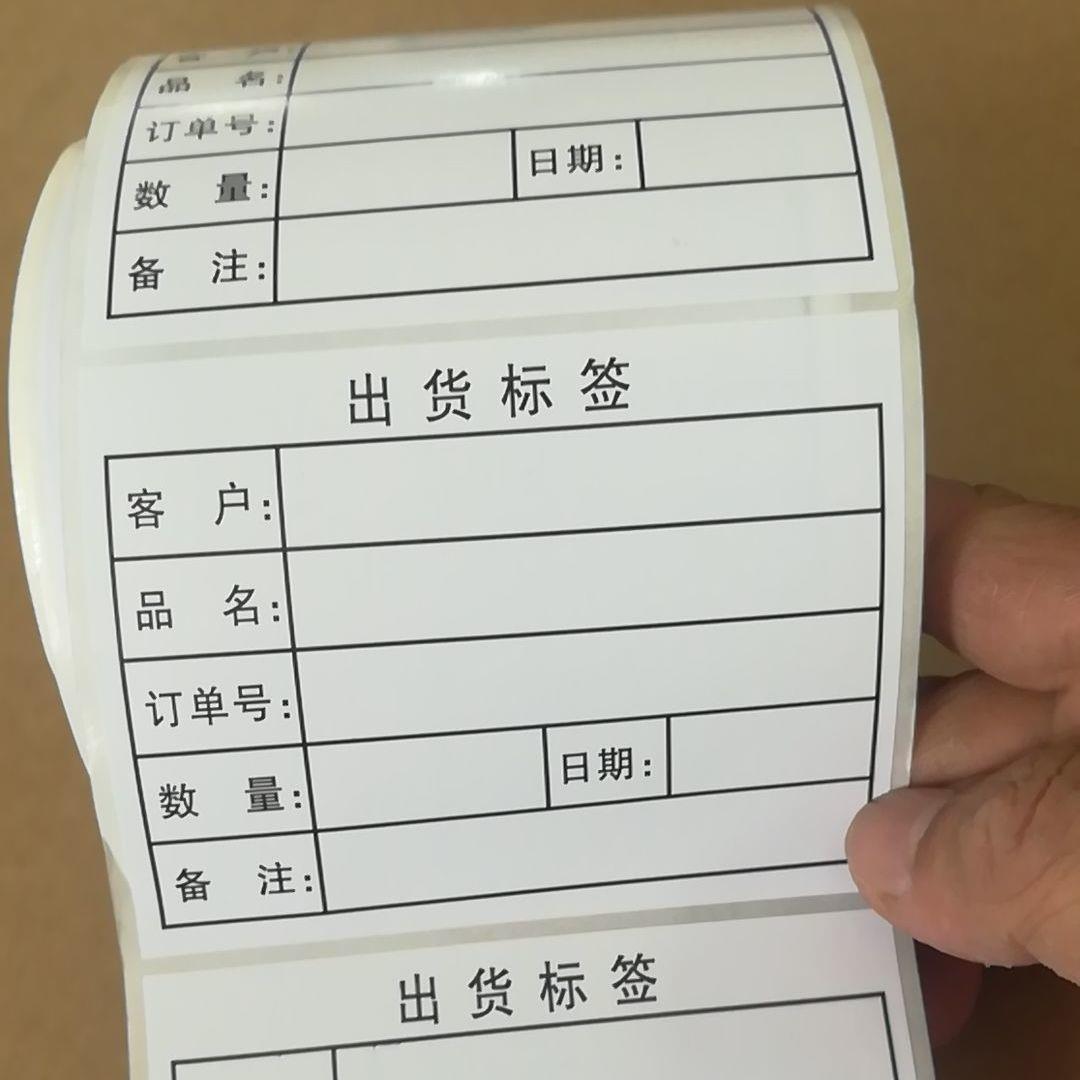 品 名:
订单号:
数 量: 日期:
备 注:
出货标签
客 户:
品 名:
订单号:
数 量: 日期:
备 注:
出货标签